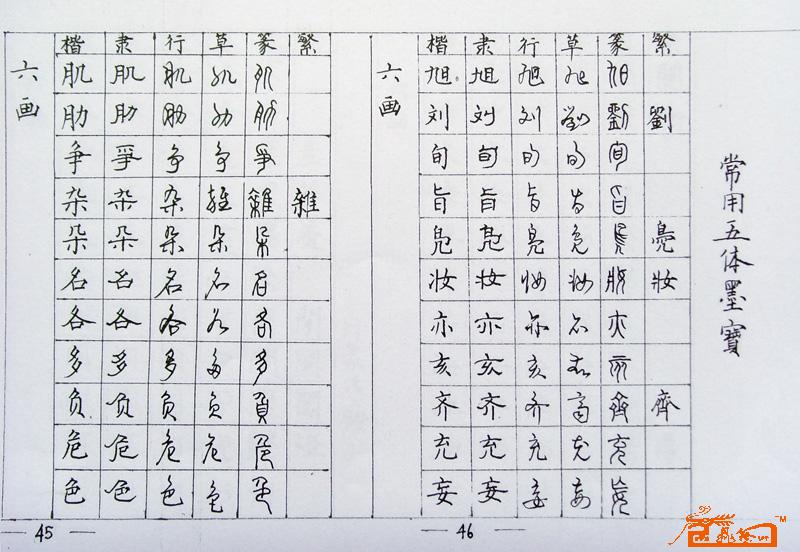 六画
楷 隶 行 草 篆 繁
肌 肌 肌 肌 肌
肋 肋 肋 肋 肋
争 爭 争 争 爭
杂 杂 杂 雜 雜 雜
朵 朵 朵 朵 朵
名 名 名 名 名
各 各 各 各 各
多 多 多 多 多
负 负 负 负 負
危 危 危 危 危
色 色 色 色 色
45
六画
楷 隶 行 草 篆 繁
旭 旭 旭 旭 旭
刘 刘 刘 劉 劉 劉
旬 旬 旬 旬 旬
旨 旨 旨 旨 旨
凫 凫 凫 凫 鳧 鳧
妆 妆 妆 妆 妝 妝
亦 亦 亦 亦 亦
亥 亥 亥 亥 亥
齐 齐 齐 齊 齊 齊
充 充 充 充 充
妄 妄 妄 妄 妄
46
常用五体墨寶